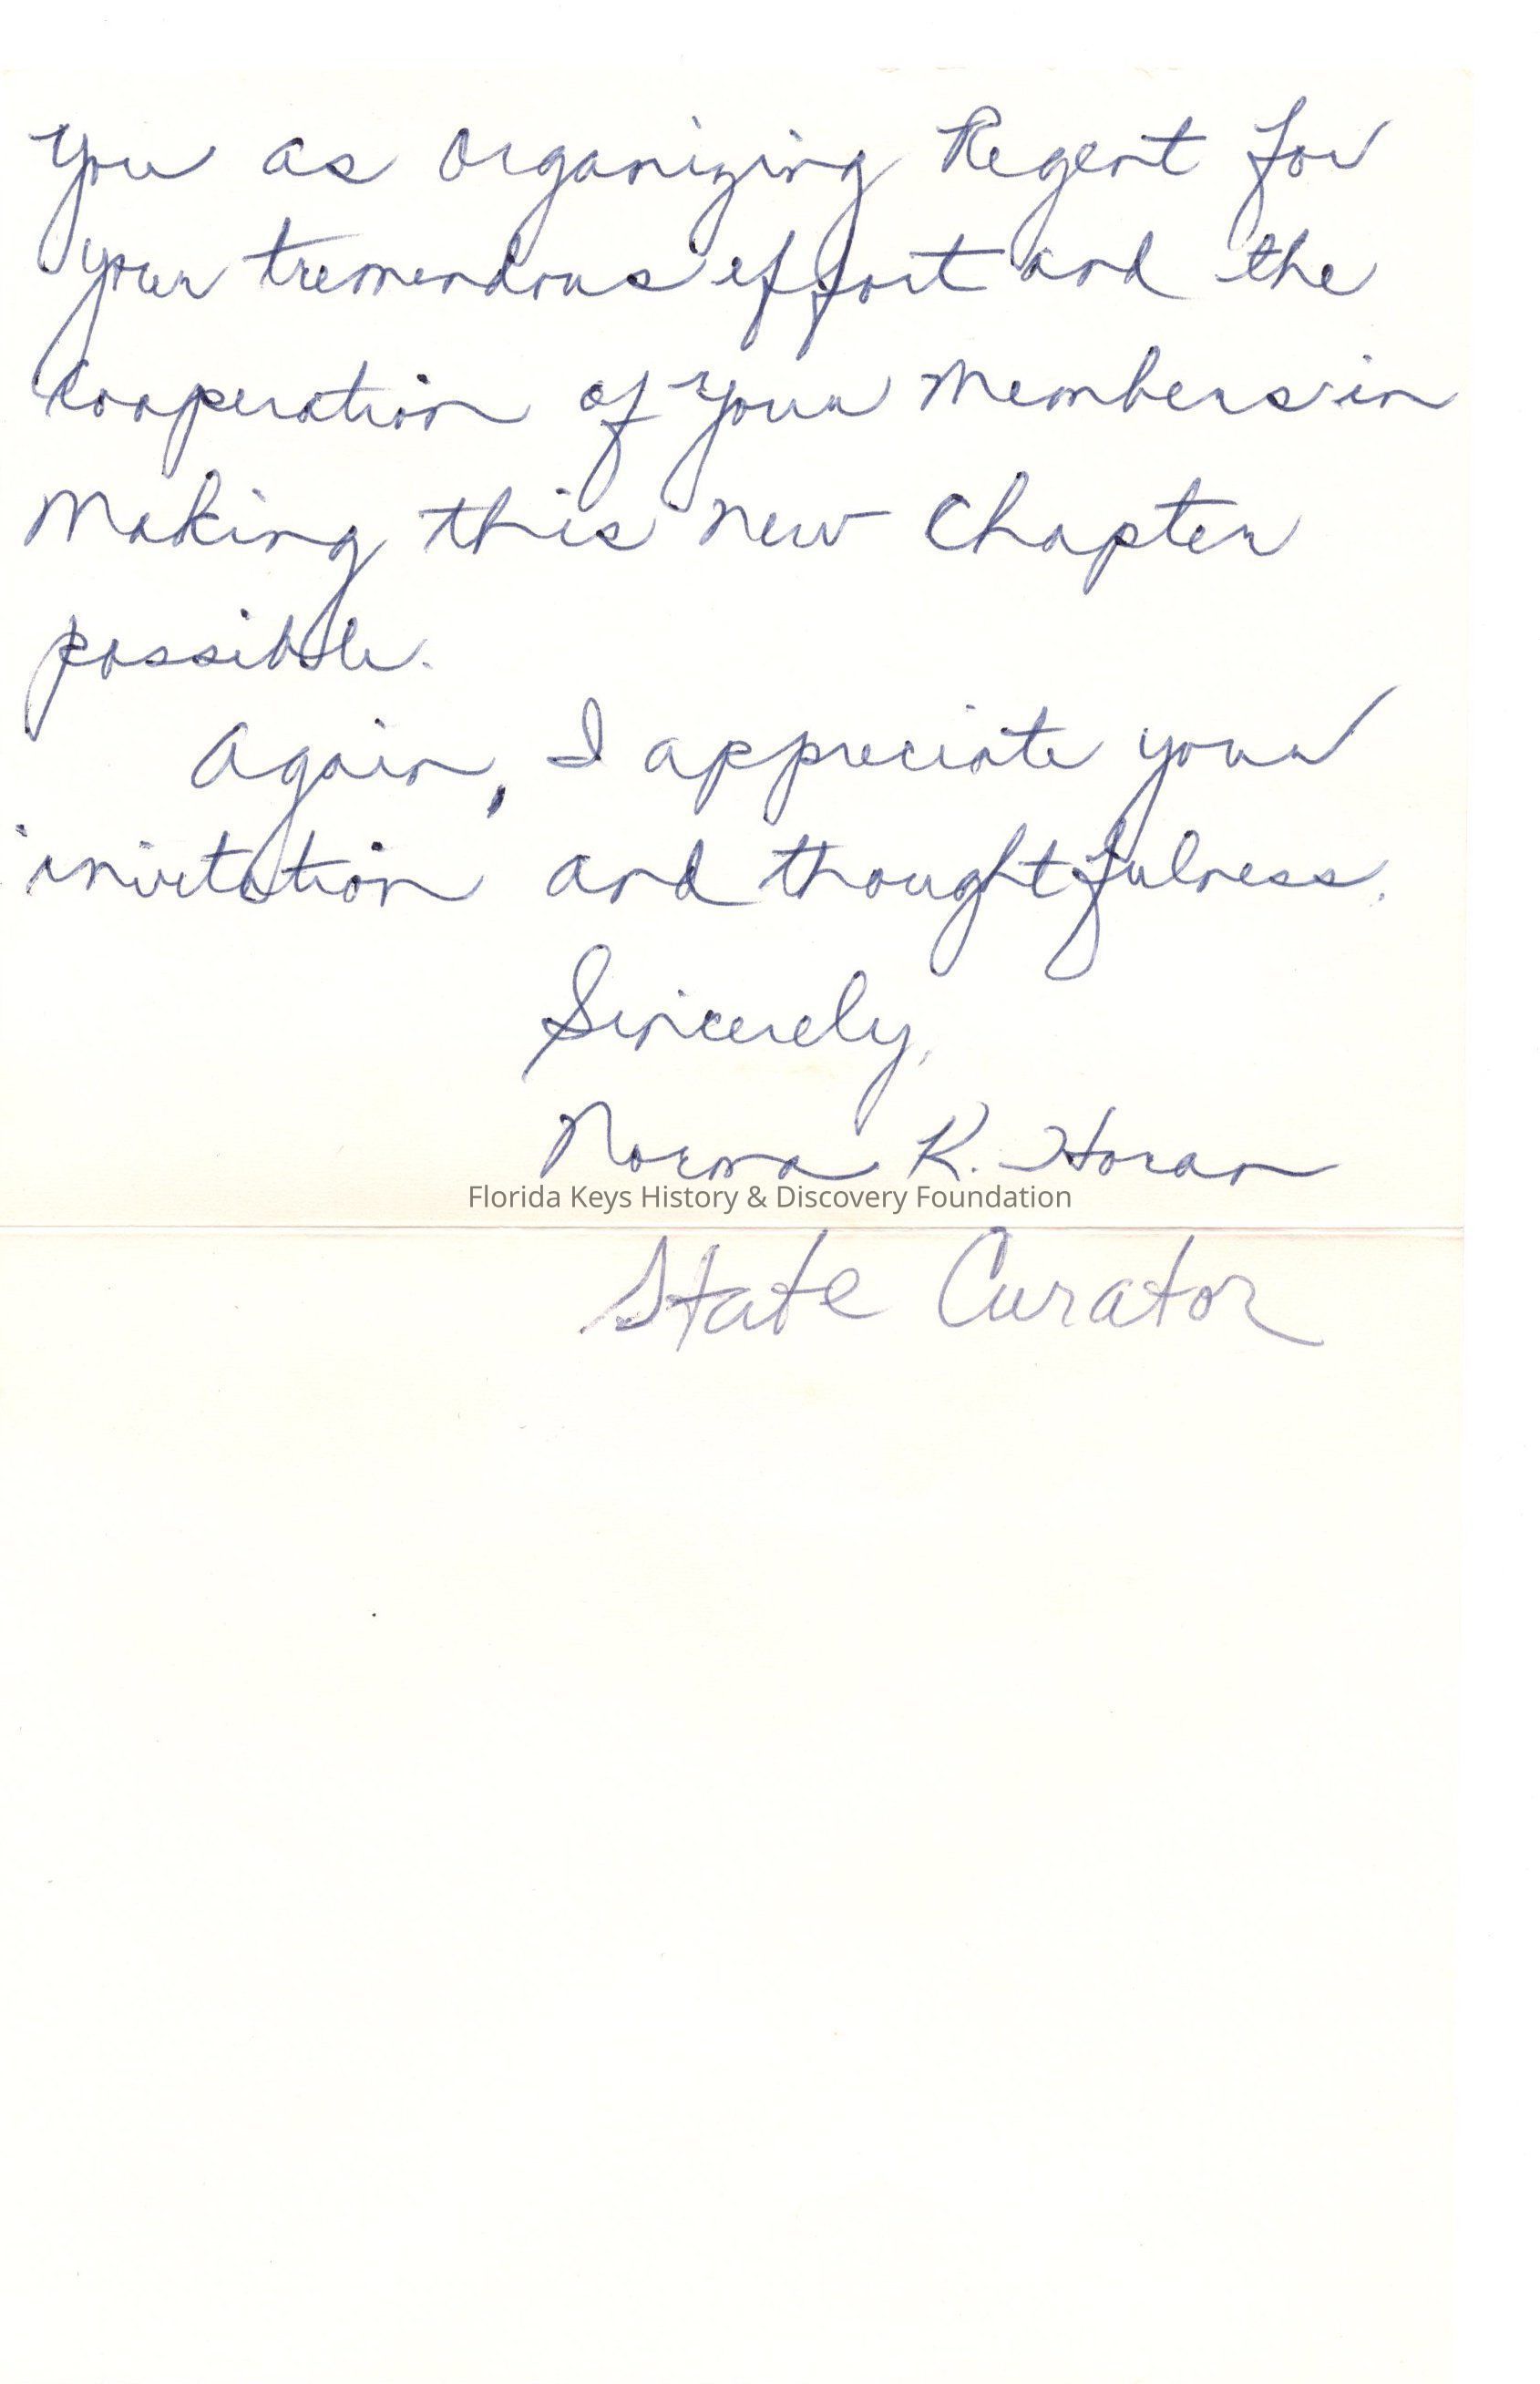 you as Organizing Regent for
your tremendous effort and the
cooperation of your members in
making this new Chapter
possible.
Again, I appreciate your
invitation and thoughtfulness.
Sincerely,
Norma K. Horan
Florida Keys History & Discovery Foundation
State Curator